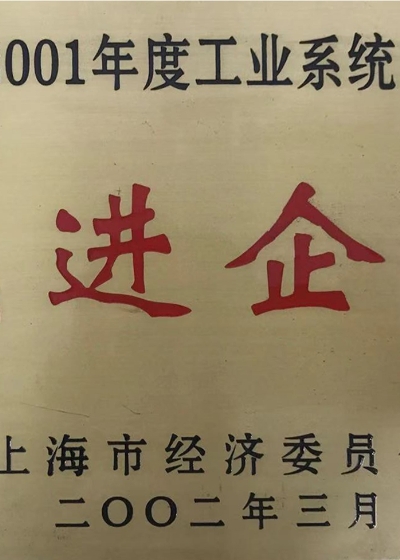 001年度工业系统
进企
上海市经济委员
二〇〇二年三月